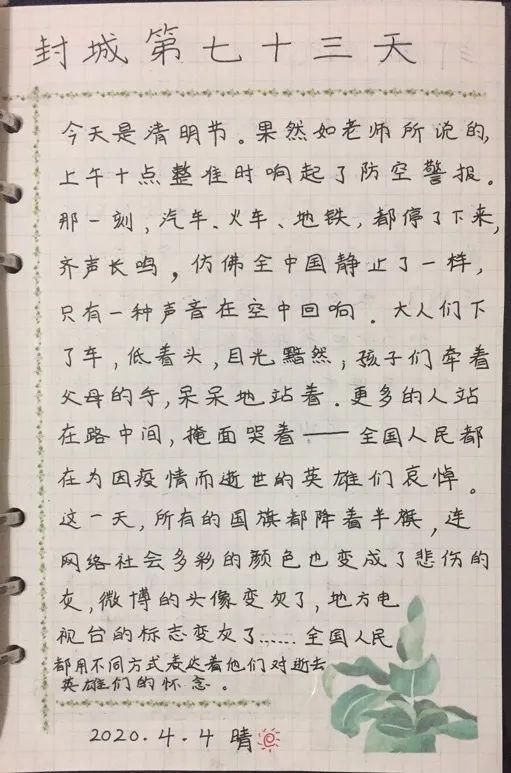 封城第七十三天
今天是清明节。果然如老师所说的,
上午十点整准时响起了防空警报。
那一刻,汽车、火车、地铁,都停了下来,
齐声长鸣,仿佛全中国静止了一样,
只有一种声音在空中回响。大人们下
了车,低着头,目光黯然,孩子们牵着
父母的手,呆呆地站着。更多的人站
在路中间,掩面哭着——全国人民都
在为因疫情而逝世的英雄们哀悼。
这一天,所有的国旗都降着半旗,连
网络社会多彩的颜色也变成了悲伤的
灰,微博的头像变灰了,地方电
视台的标志变灰了……全国人民
都用不同方式表达着他们对逝去
英雄们的怀念。
2020.4.4 晴